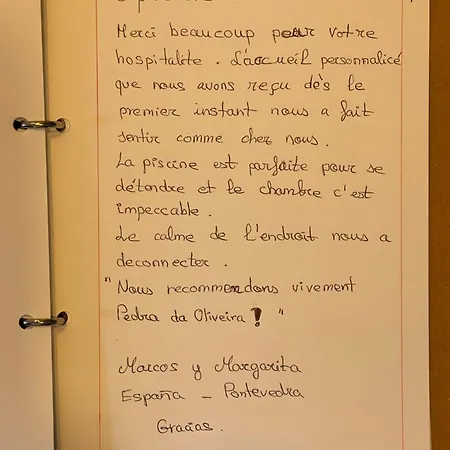 Merci beaucoup pour votre
hospitalite. L'accueil personnalicé
que nous avons reçu dès le
premier instant nous a fait
sentir comme chez nous.
La piscine est parfaite pour se
détendre et le chambre c'est
impeccable.
Le calme de l'endroit nous a
deconnecter.
"Nous recommendons vivement
Pedra da Oliveira! "
Marcos y Margarita
España - Pontevedra
Gracias.